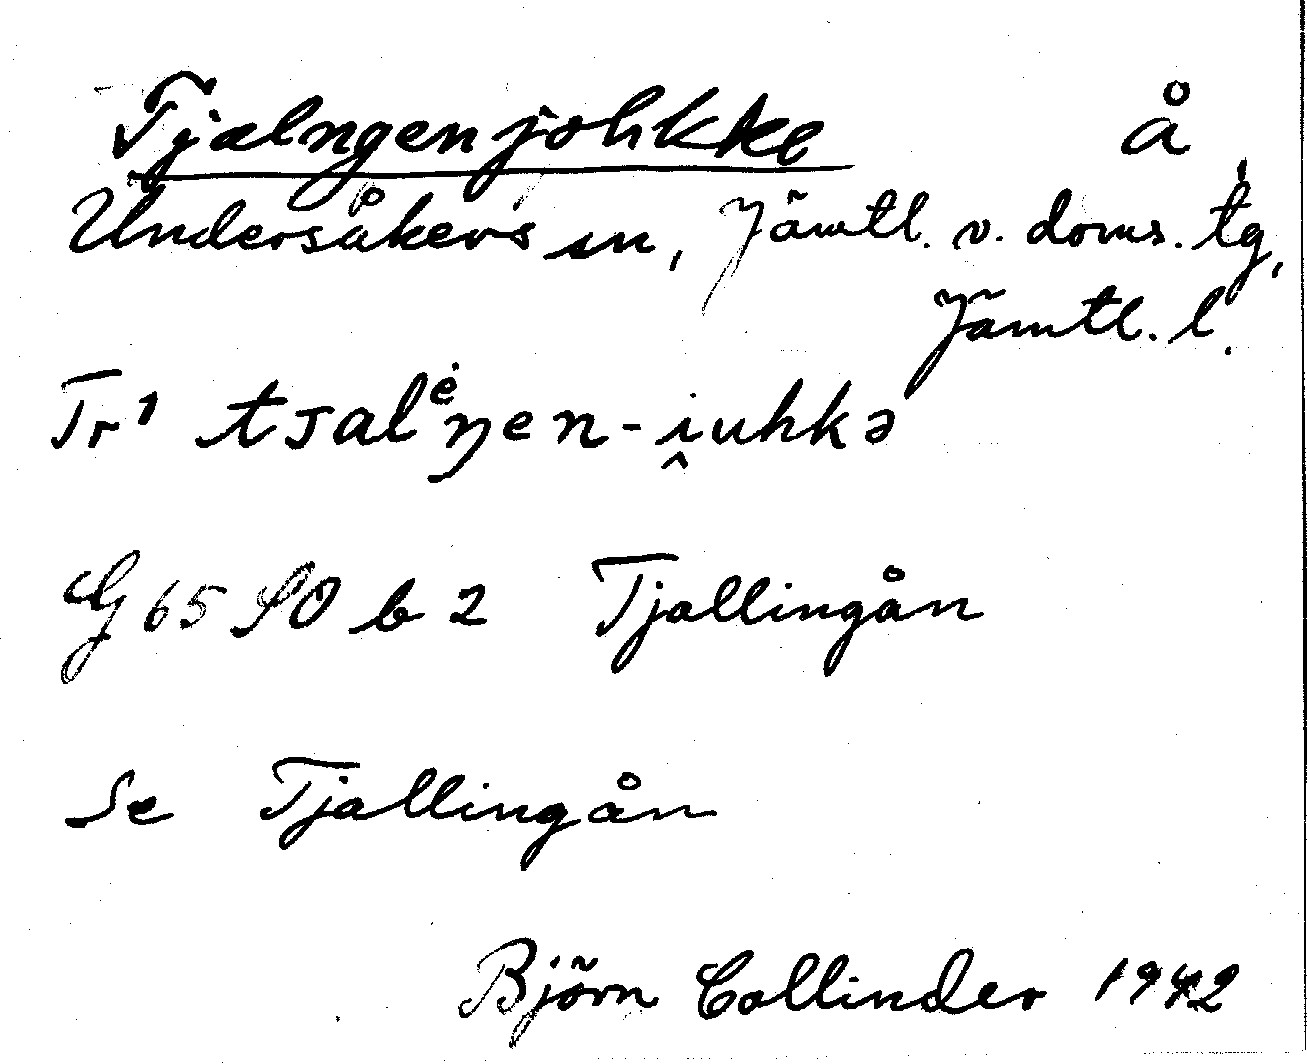 Tjælngenjohkke å,
Undersåkers sn, Jämtl. v. doms. tg,
Jämtl. l.
Tr¹ tsalᵉ̇ŋen-i̭uhkə
G 65 SO b 2 Tjallingån
Se Tjallingån
Björn Collinder 1942